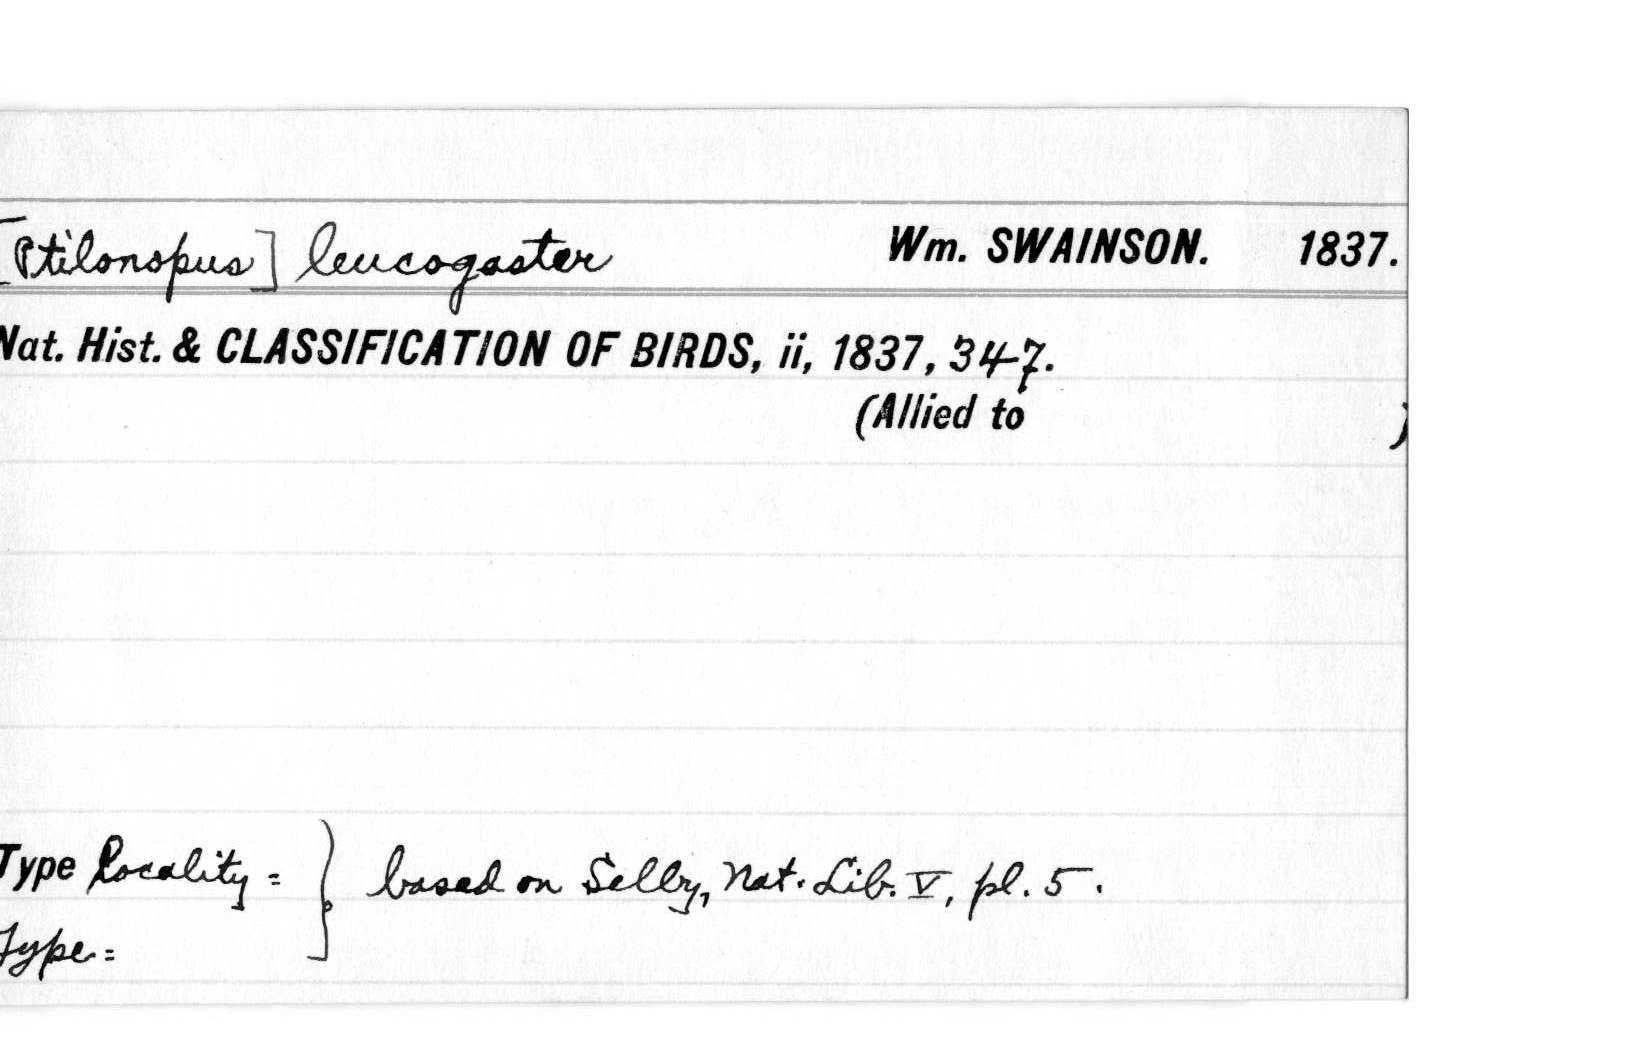 [Ptilonopus] leucogaster Wm. SWAINSON. 1837.
Nat. Hist. & CLASSIFICATION OF BIRDS, ii, 1837, 347.
(Allied to )
Type Locality = } based on Selby, Nat. Lib. V, pl. 5.
Type =